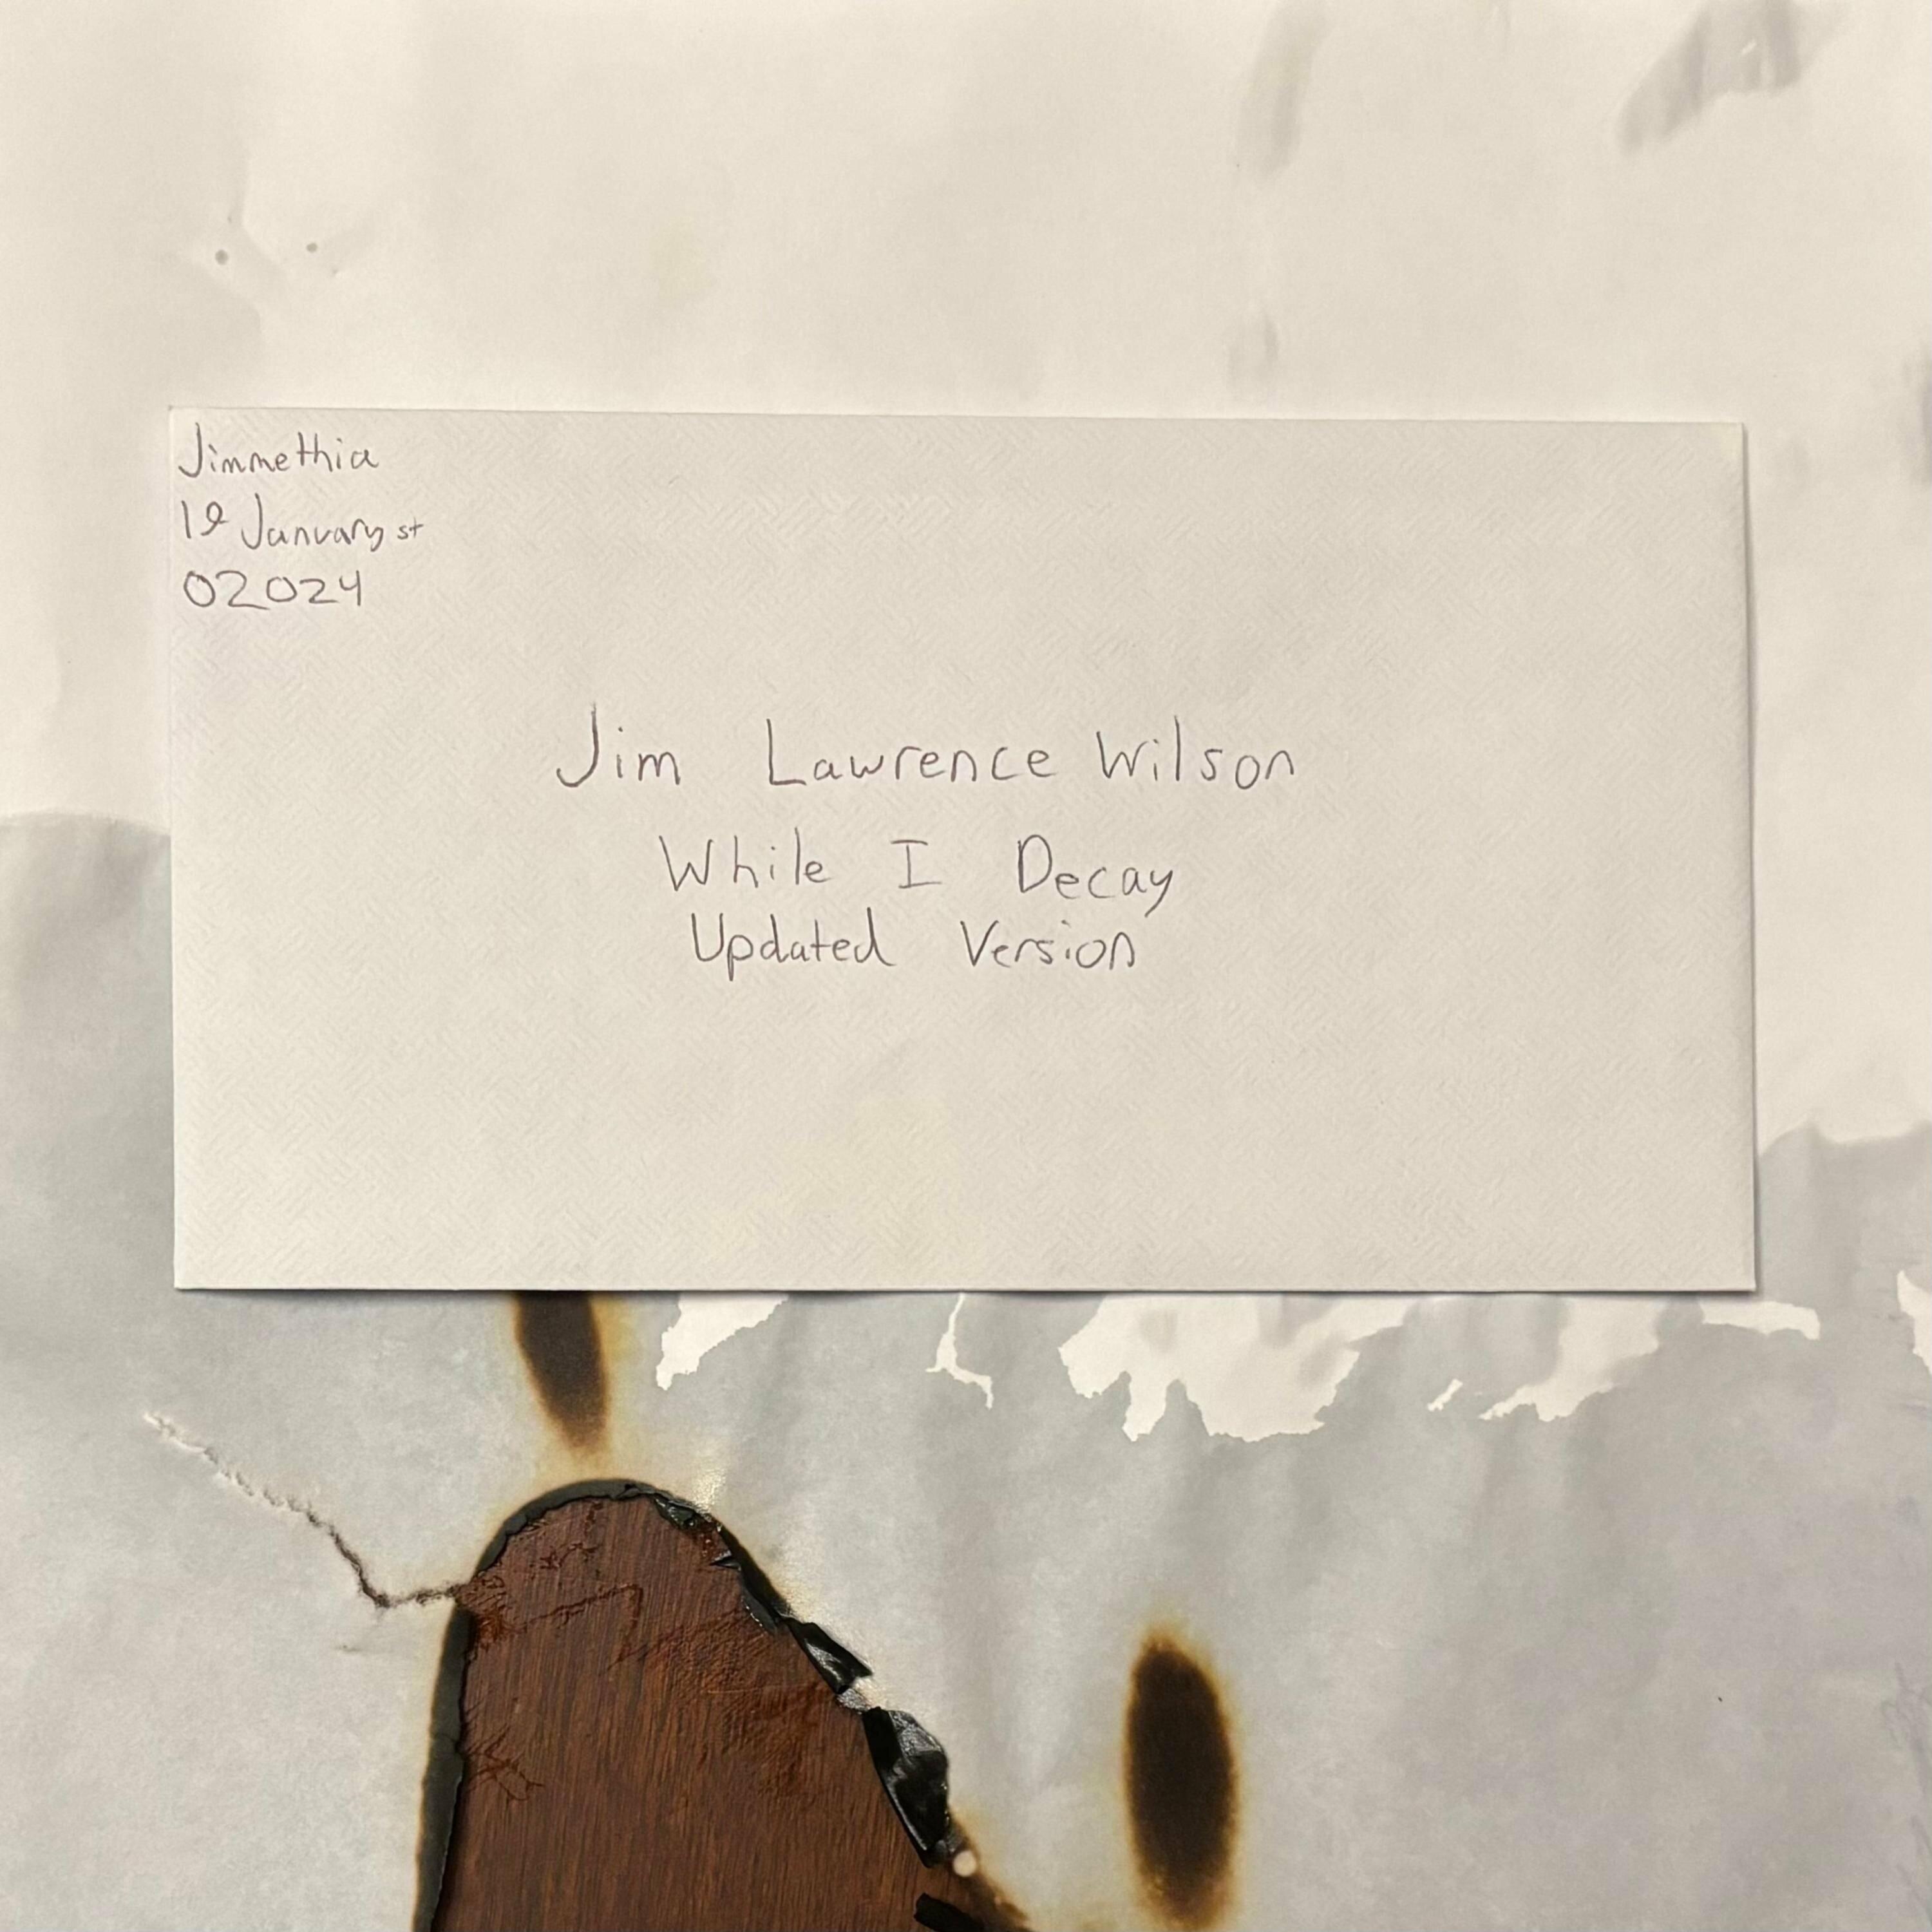 Jimmethia
19 January st
02024
Jim Lawrence Wilson
While I Decay
Updated Version